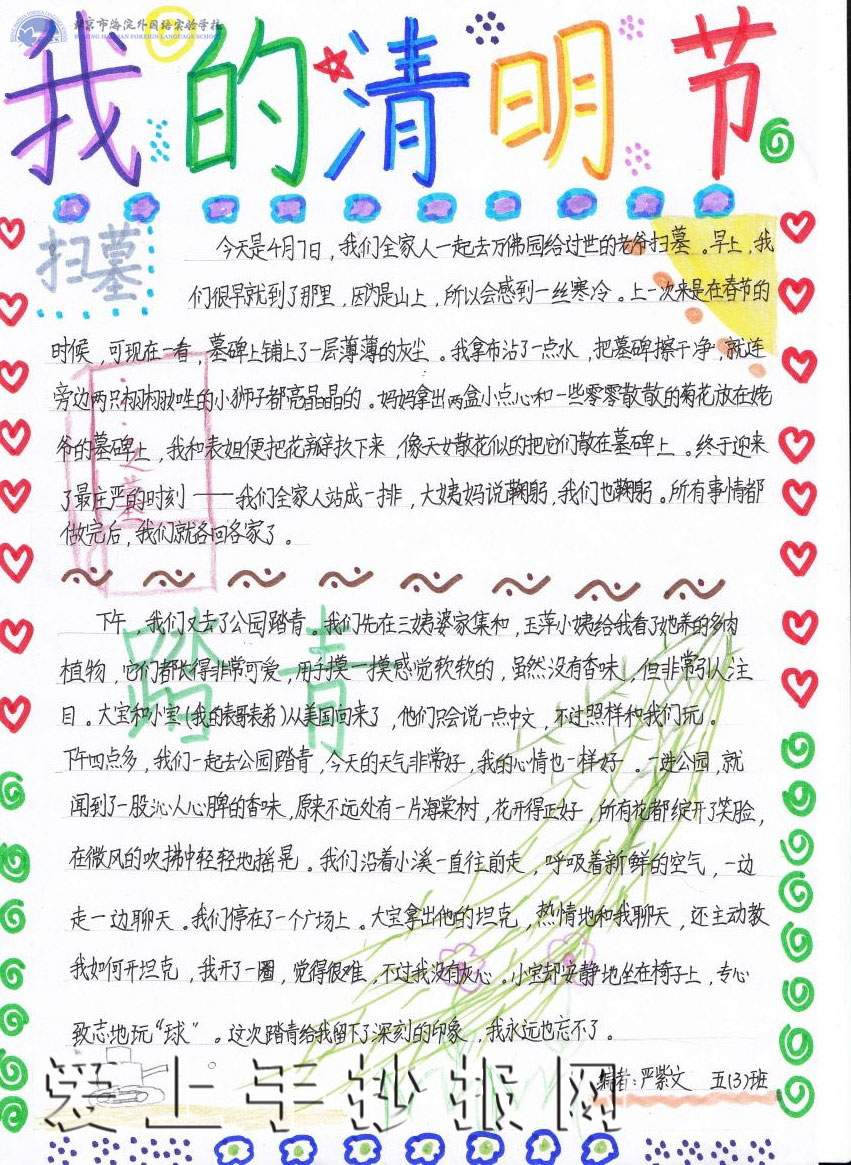 北京市海淀外国语实验学校
BEIJING HAIDIAN FOREIGN LANGUAGE SCHOOL
我的清明节
扫墓
今天是4月7日，我们全家人一起去万佛园给过世的老爷扫墓。早上，我
们很早就到了那里，因为是山上，所以会感到一丝寒冷。上一次来是在春节的
时候，可现在一看，墓碑上铺上了一层薄薄的灰尘。我拿布沾了一点水，把墓碑擦干净，就连
旁边两只栩栩如生的小狮子都亮晶晶的。妈妈拿出两盒小点心和一些零零散散的菊花放在姥
爷的墓碑上，我和表姐便把花瓣扒下来，像天女散花似的把它们散在墓碑上。终于迎来
了最庄严的时刻——我们全家人站成一排，大姨妈说鞠躬，我们也鞠躬。所有事情都
做完后，我们就各回各家了。
之墓
踏青
下午，我们又去了公园踏青。我们先在三姨婆家集和，玉萍小姨给我看了她养的多肉
植物，它们都长得非常可爱，用手摸一摸感觉软软的，虽然没有香味，但非常引人注
目。大宝和小宝（我的表哥表弟）从美国回来了，他们只会说一点中文，不过照样和我们玩。
下午四点多，我们一起去公园踏青，今天的天气非常好，我的心情也一样好。一进公园，就
闻到了一股沁人心脾的香味，原来不远处有一片海棠树，花开得正好，所有花都绽开了笑脸，
在微风的吹拂中轻轻地摇晃。我们沿着小溪一直往前走，呼吸着新鲜的空气，一边
走一边聊天。我们停在了一个广场上。大宝拿出他的坦克，热情地和我聊天，还主动教
我如何开坦克，我开了一圈，觉得很难，不过我没有灰心。小宝却安静地坐在椅子上，专心
致志地玩“球”。这次踏青给我留下了深刻的印象，我永远也忘不了。
编者：严紫文 五(3)班
爱上手抄报网